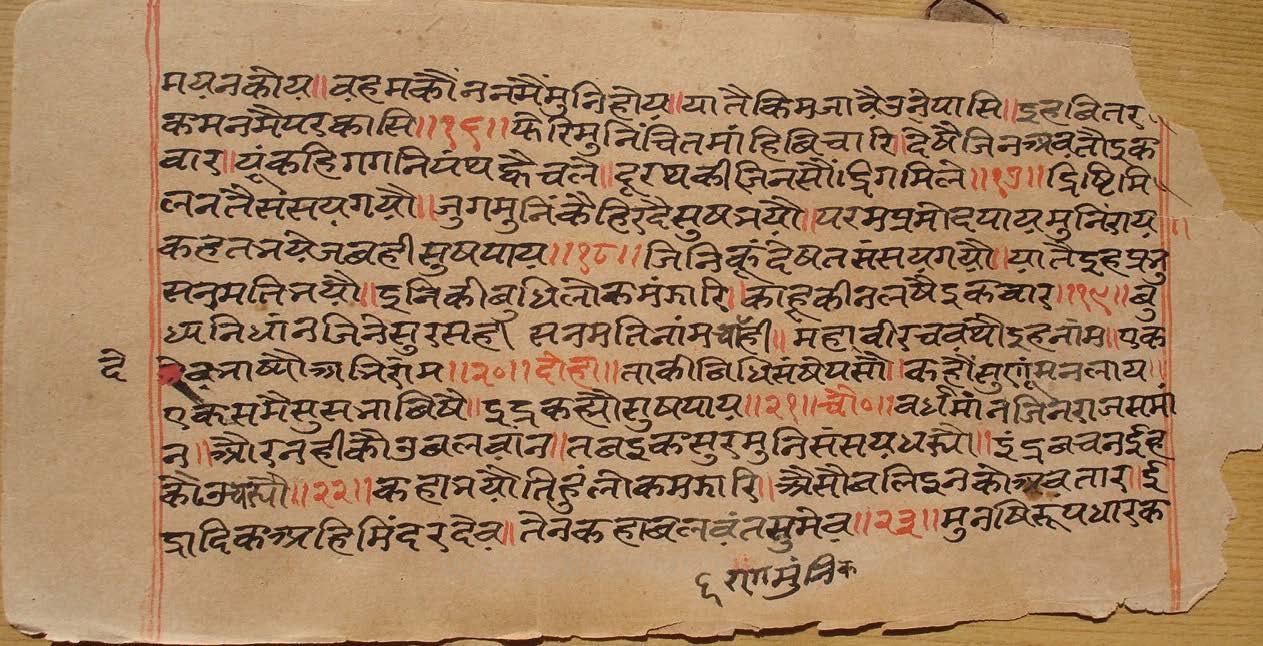 मयनकोय॥वहमकौंननमैंमुनिहोय॥यातैकिमजावैउनेपासि॥इहबितर
कमनमैपरकासि॥१६॥फेरिमुनिंचितमांहिबिचारि॥देषैजिनआवतौइक
वार॥यूंकहिगगनिपंथह्वैचले॥दूरथकीजिनसौंद्रिगमिले॥१७॥द्रिष्टिमि
लनंतैसंसयगयौ॥जुगमुनिंकैहिरदैसुषभयौ॥परमप्रमोदपायमुनिराय॥
कहतभयेजबहीसुषपाय॥१८॥जिनिकूंदेषतसंसयगयौ॥यातैइहप्रभु
सनमतिभयौ॥इनिकीबुधिलोकमंझारि॥काहूकीनलषैंइकवार॥१९॥बु
ध्यनिधांनजिनेसुरसही सनमतिनांम॥महावीरचवथौइहनांम॥एक
दे वभाष्यौअभिरांम॥२०॥दोहा॥ताकीबिधिसंषेपसौं॥कहौंसुणूंमनलाय॥
एकसमैसुसभाबिषै॥इंद्रकह्यौसुषपाय॥२१॥चौ०॥वर्धमांनजिनराजसमां
न॥औरनहीकौउबलवांन॥तबइकसुरमुनिसंसयधर्यौ॥इंद्रबचनईह
॥२२॥कहाभयौतिहुंलोकमझारि॥औसौबलिइनकोअवतार॥ई
द्रादिकअहिमिंदरदैव॥तैनकहाबलवंतसुमेव॥२३॥मुनषिरूपधारक